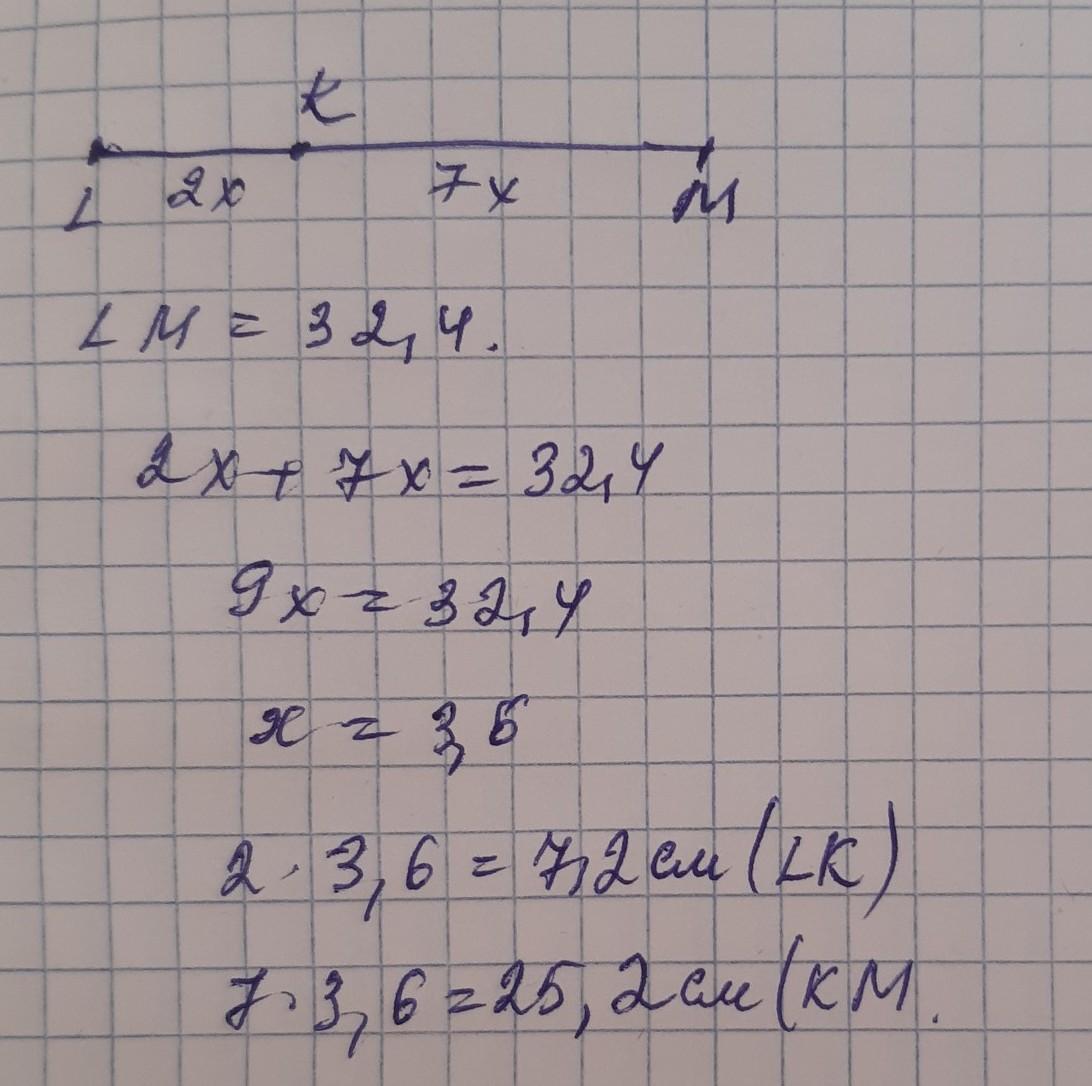 K
L 2x 7x M
LM = 32,4.
2x + 7x = 32,4
9x = 32,4
x = 3,6
2 · 3,6 = 7,2 см (LK)
7 · 3,6 = 25,2 см (KM.